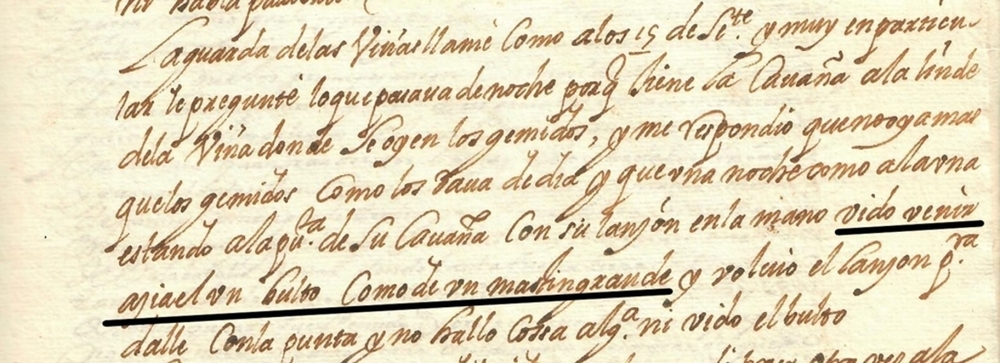 ni habia
La guarda delas Viñas llamé Como a los 15 de Se.te y muy en particu-
lar le pregunté lo que pasava de noche porq tiene la Cavaña a la linde
dela Viña donde Se oyen los gemidos, y me respondio que no oya mas
que los gemidos Como los dava de dia y que vna noche como a la vna
estando a la pu.ta de Su Cavaña Con su lanzón en la mano vido venir
azia el vn bulto Como de vn mastin grande y volvio el lanzon p.ra
dalle Con la punta y no hallo Cossa alg.a ni vido el bulto